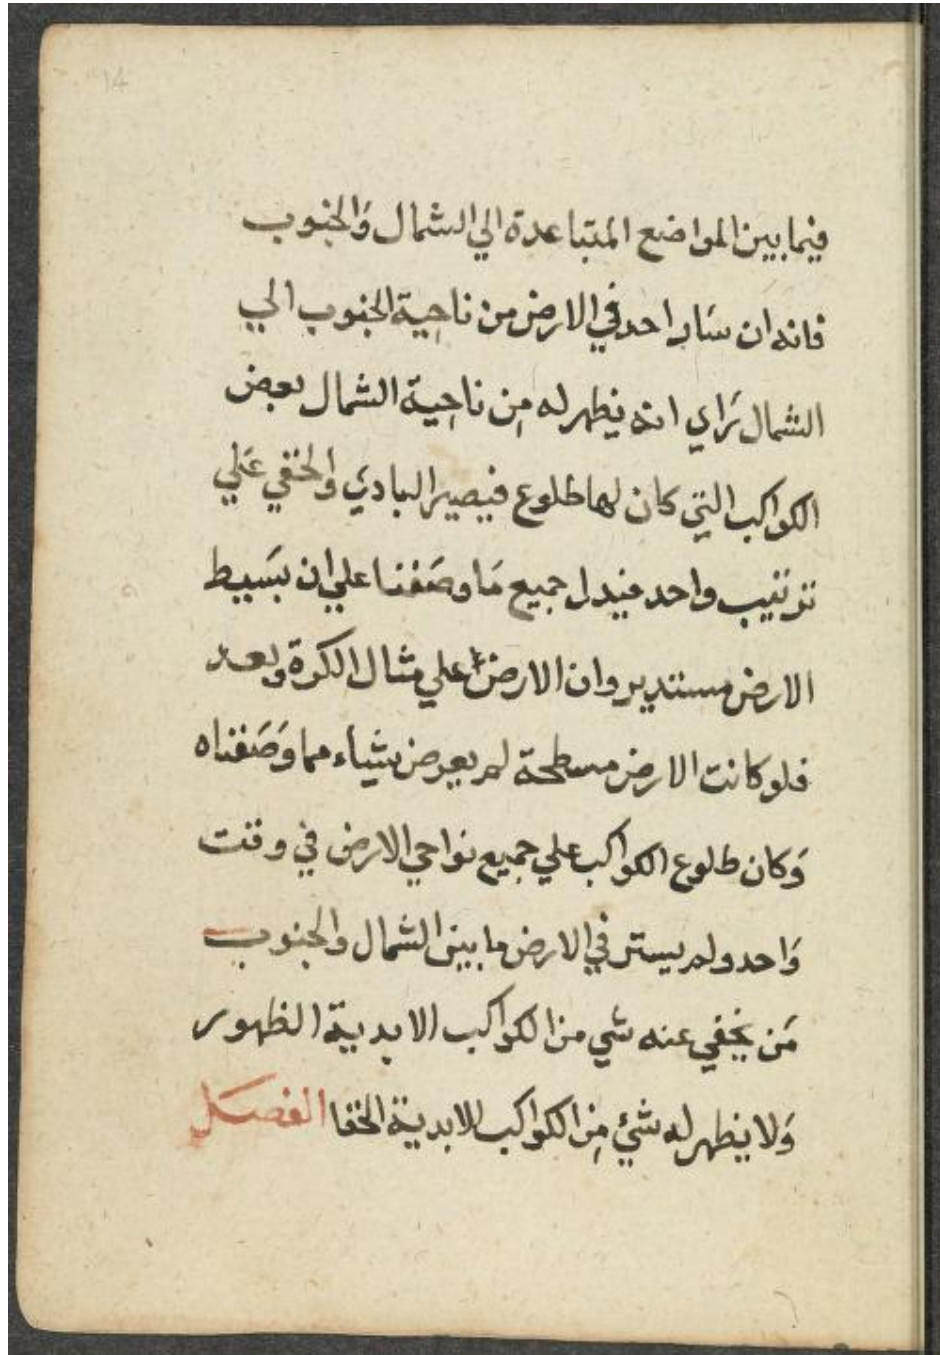 14
فيما بين المواضع المتباعدة الي الشمال وَالجنوب
فانه ان سَار احد في الارض من ناحِية الجنوب الي
الشمال رَاي انه يظهر له مِن ناحِية الشمال بعض
الكواكب التي كان لها طلوع فيصير البادي والخفي عَلي
ترتيب واحد فيدل جميع مَا وصَفنا علي ان بسَيط
الارض مستدير وان الارض علي مثال الكرة وبعد
فلو كانت الارض مسطحة لم يعرض بشياء مما وَصَفناه
وَكان طلوع الكواكب علي جميع نواحي الارض في وقت
وَاحد ولم يستر في الارض ما بين الشمال والجنوب
مَن يخفي عنه شي من الكواكب الابدية الظهور
وَلا يظهر له شيء مِن الكواكب الابدية الخفا الفصَل